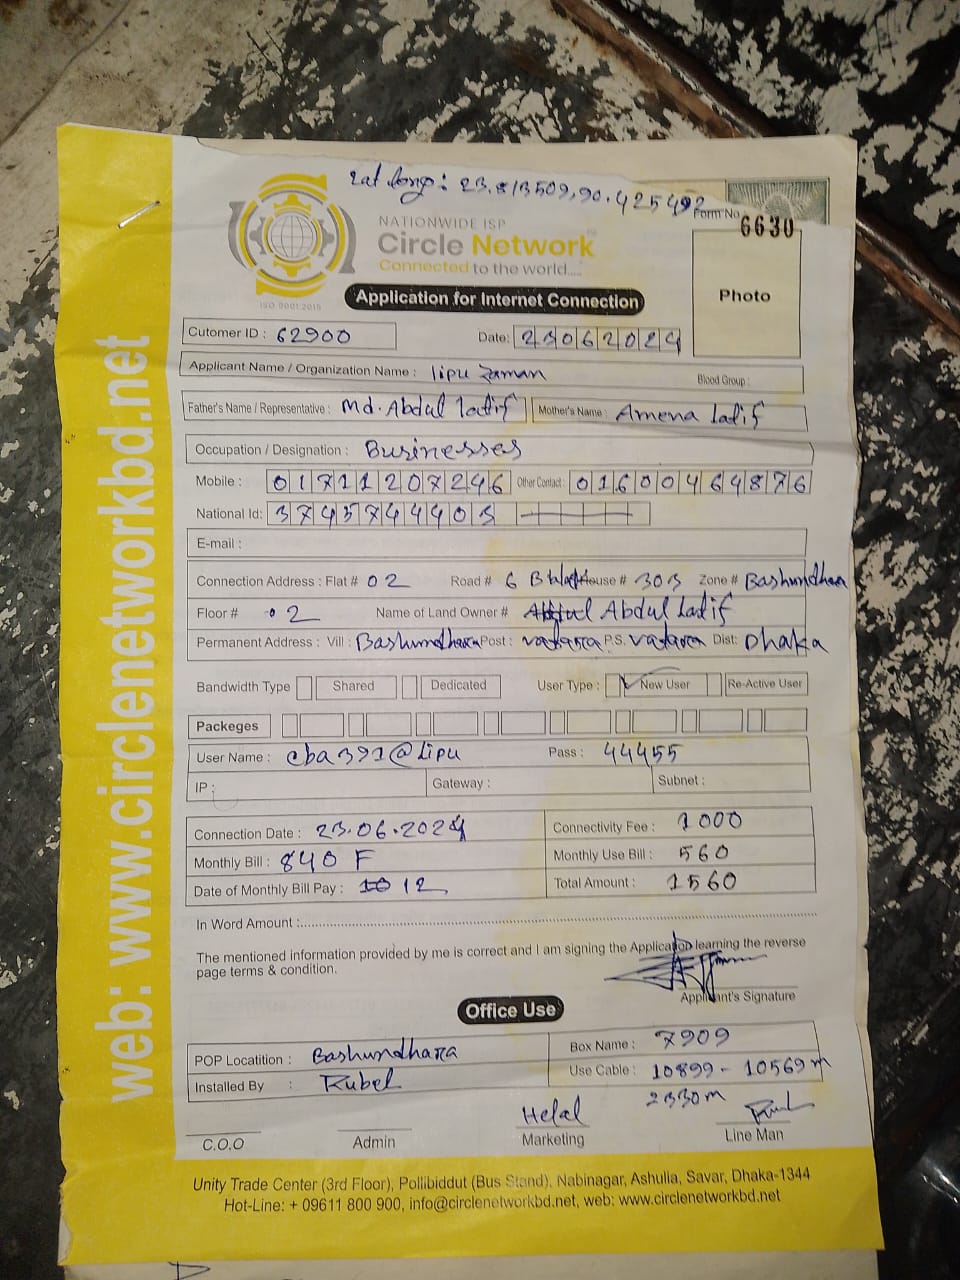 Lat long: 23.813509,90.425492
Form No 6630
NATIONWIDE ISP
Circle Network
Connected to the world....
ISO 9001:2015
Application for Internet Connection
Photo
Cutomer ID : 62900
Date: 23062024
Applicant Name / Organization Name : lipu Zaman Blood Group :
Father's Name / Representative : Md. Abdul ladif Mother's Name : Amena ladif
Occupation / Designation : Businesses
Mobile : 01711207246 Other Contact : 01600464876
National Id: 3745744403
E-mail :
Connection Address : Flat # 02 Road # 6 House # 303 Zone # Bashundhara
Floor # 02 Name of Land Owner # Abdul ladif
Permanent Address : Vill : Bashundhara Post : vatara P.S. vatara Dist: Dhaka
Bandwidth Type Shared Dedicated User Type : New User Re-Active User
Packeges
User Name : cba391@lipu Pass : 44455
IP : Gateway : Subnet :
Connection Date : 23.06.2024 Connectivity Fee : 1000
Monthly Bill : 840 F Monthly Use Bill : 560
Date of Monthly Bill Pay : 10 12 Total Amount : 1560
In Word Amount :
The mentioned information provided by me is correct and I am signing the Application learning the reverse
page terms & condition.
Applicant's Signature
Office Use
POP Locatition : Bashundhara Box Name : 7909
Installed By : Rubel Use Cable : 10899 - 10569 m
2330m
Helal
C.O.O Admin Marketing Line Man
Unity Trade Center (3rd Floor), Pollibiddut (Bus Stand), Nabinagar, Ashulia, Savar, Dhaka-1344
Hot-Line: + 09611 800 900, info@circlenetworkbd.net, web: www.circlenetworkbd.net
web: www.circlenetworkbd.net